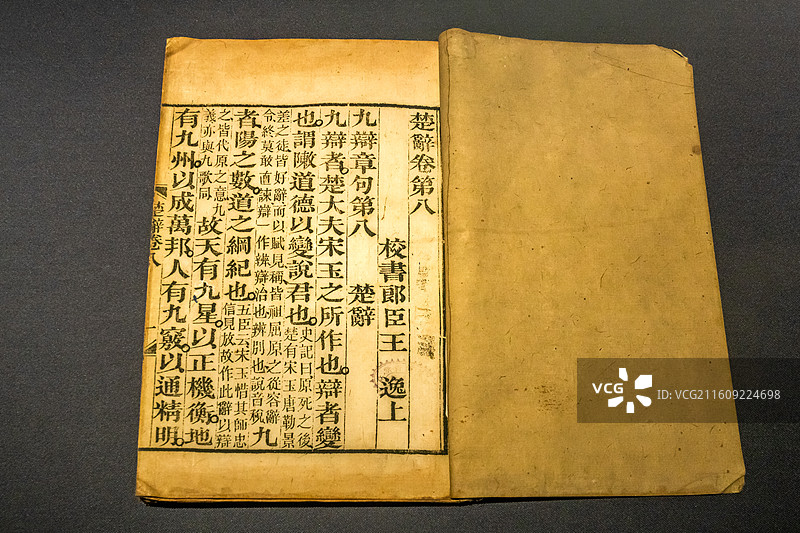 楚辭卷第八
校書郎臣王 逸上
九辯章句第八 楚辭
九辯者。楚大夫宋玉之所作也。辯者變
也。謂敶道德以變說君也。史記曰原死之後
楚有宋玉唐勒景
差之徒皆好辭而以賦見稱皆祖屈原之從容辭
令終莫敢直諫辯一作辨辯治也辨別也說音稅九
者。陽之數。道之綱紀也。五臣云宋玉惜其師忠
信見放故作此辭以辯
之皆代原之意九
義亦與九歌同故天有九星。以正機衡。地
有九州。以成萬邦。人有九竅。以通精明。
楚辭卷八
一
VCG
VCG211609224698